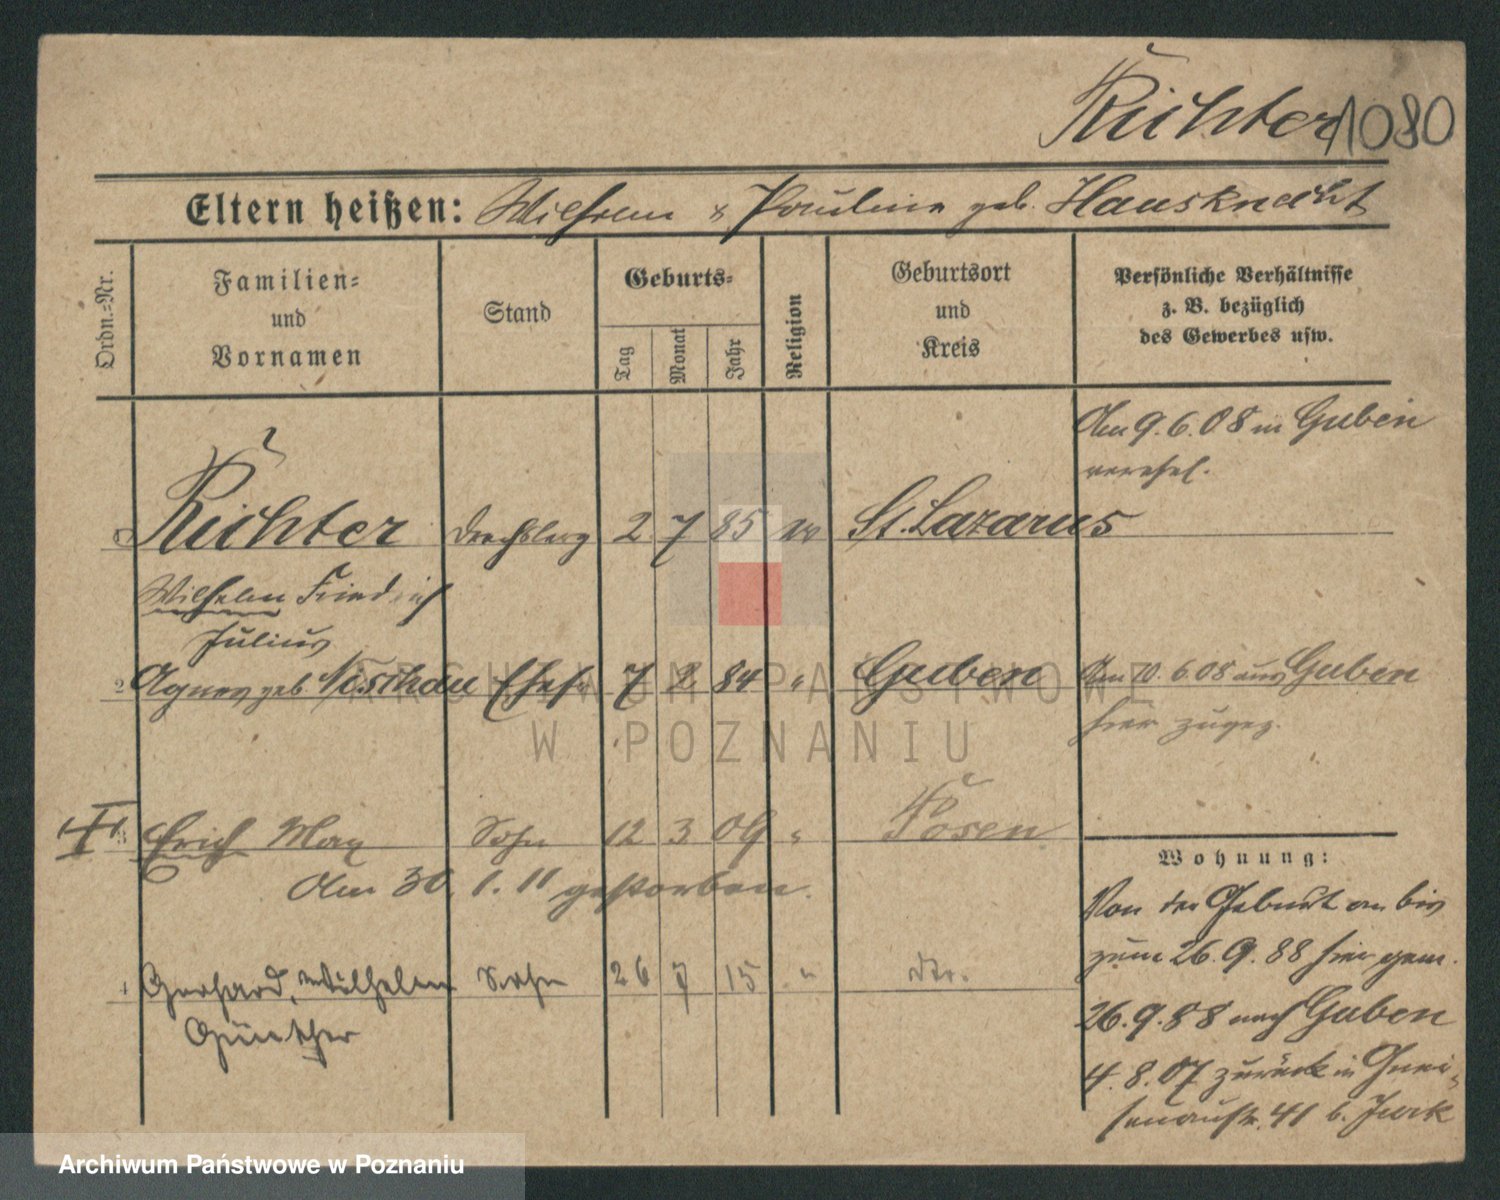 Richter 1080
Eltern heißen: Wilhelm & Pauline geb. Hausknecht
Ordn.-Nr.
Familien-
und
Vornamen
Stand
Geburts-
Tag
Monat
Jahr
Religion
Geburtsort
und
Kreis
Persönliche Verhältnisse
z. B. bezüglich
des Gewerbes usw.
Am 9.6.08 in Guben
verehel.
Richter 2 7 85 St. Lazarus
Wilhelm Friedrich
Julius
2 Agnes geb. Nischau Ehefr. 7 2 84 " Guben Am 10.6.08 aus Guben
hier zugez.
3 Erich Max Sohn 12 3 09 " Posen
Am 30.1.11 gestorben.
4 Gerhard, Wilhelm Sohn 26 7 15 " dto.
Günther
Wohnung:
Von der Geburt an bis
zum 26.9.88 hier gem.
26.9.88 nach Guben
4.8.07 zurück in Gnei-
senaustr. 41 b.
ARCHIWUM PAŃSTWOWE
W POZNANIU
Archiwum Państwowe w Poznaniu